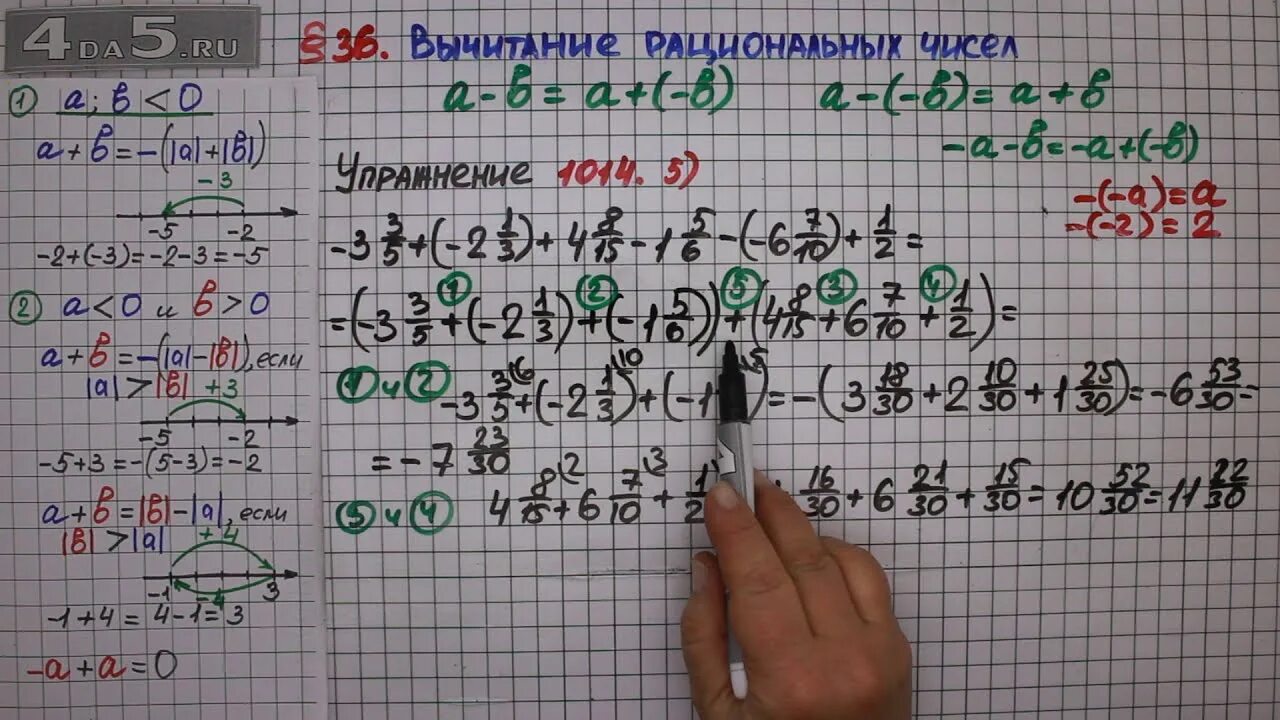 4DA5.RU
§36. Вычитание рациональных чисел
a - b = a + (-b) a - (-b) = a + b
-a - b = -a + (-b)
-(-a) = a
-(-2) = 2
① a; b < 0
a + b = -(|a| + |b|)
-3
-5 -2
-2 + (-3) = -2 - 3 = -5
② a < 0 и b > 0
a + b = -(|a| - |b|), если
|a| > |b| +3
-5 -2
-5 + 3 = -(5 - 3) = -2
a + b = |b| - |a|, если
|b| > |a| +4
-1 -4 3
-1 + 4 = 4 - 1 = 3
-a + a = 0
Упражнение 1014. 5)
-3 3/5 + (-2 1/3) + 4 8/15 - 1 5/6 - (-6 7/10) + 1/2 =
① ② ⑤ ③ ④
= (-3 3/5 + (-2 1/3) + (-1 5/6)) + (4 8/15 + 6 7/10 + 1/2) =
① и ② -3 3/5 \6 + (-2 1/3 \10) + (-1 \5) = -(3 18/30 + 2 10/30 + 1 25/30) = -6 53/30 =
= -7 23/30
③ и ④ 4 8/15 \2 + 6 7/10 \3 + 1/2 16/30 + 6 21/30 + 15/30 = 10 52/30 = 11 22/30